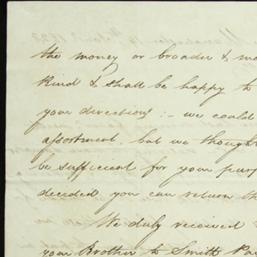 the money or broader & mo
kind & shall be happy to
your directions :- we could
assortment but we thought
be sufficient for your purp
decided you can return th
We duly received
your Brother to Smith Pa